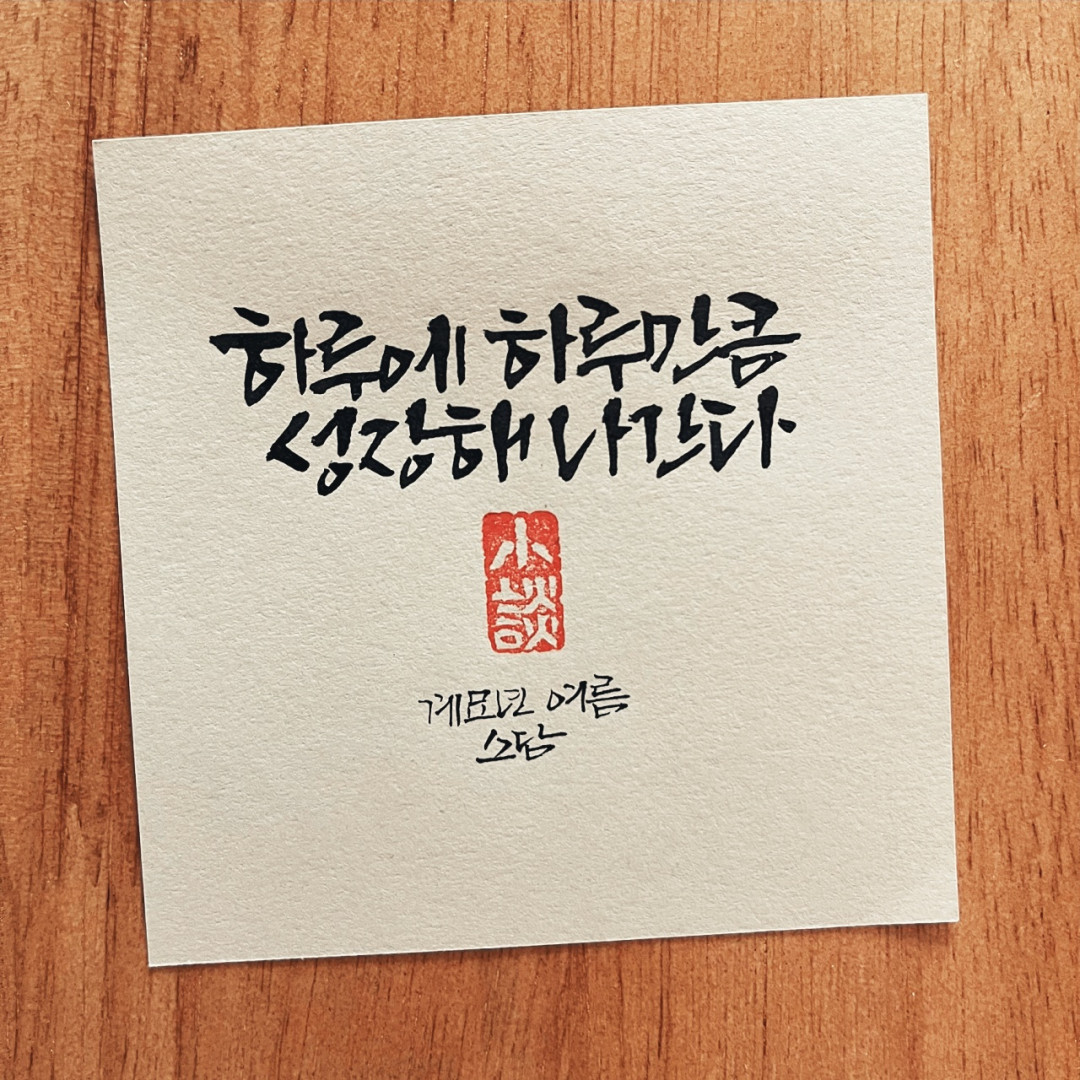 하루에 하루만큼
성장해 나간다
小
談
계묘년 여름
소담